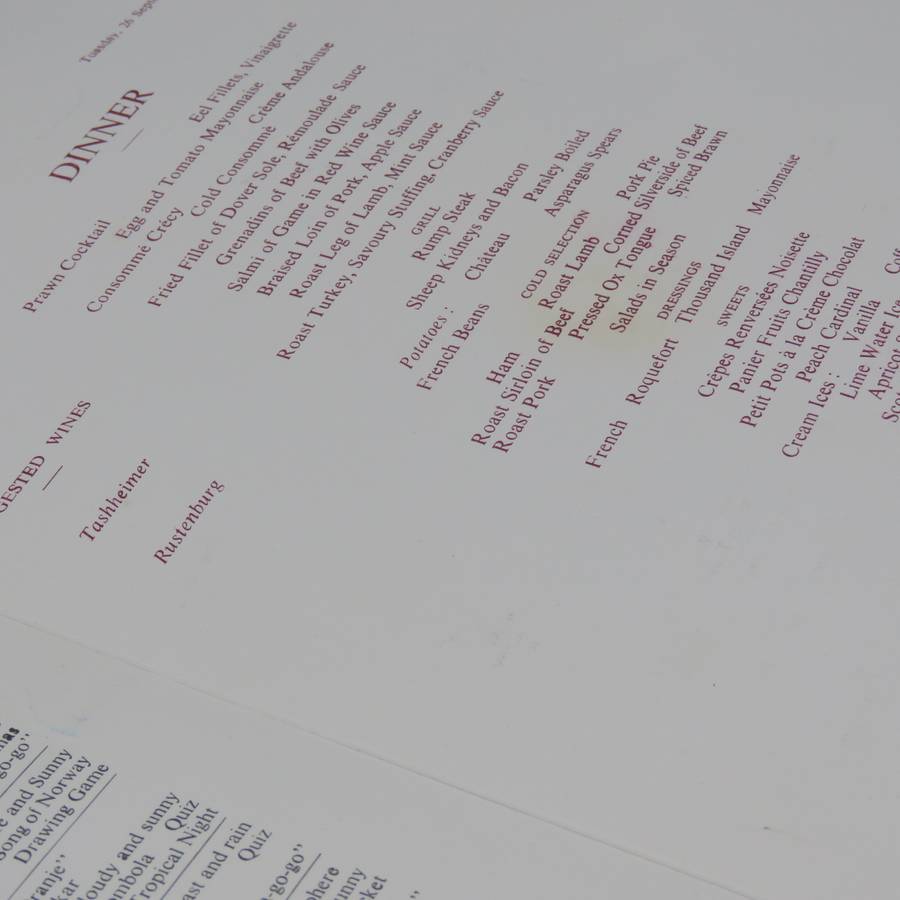 Tuesday, 26
DINNER
Prawn Cocktail Egg and Tomato Mayonnaise Eel Fillets, Vinaigrette
Consommé Crécy Cold Consommé Crème Andalouse
Fried Fillet of Dover Sole, Rémoulade Sauce
Grenadins of Beef with Olives
Salmi of Game in Red Wine Sauce
Braised Loin of Pork, Apple Sauce
Roast Leg of Lamb, Mint Sauce
Roast Turkey, Savoury Stuffing, Cranberry Sauce
GRILL
Rump Steak
Sheep Kidneys and Bacon
Potatoes : Château Parsley Boiled
French Beans Asparagus Spears
COLD SELECTION
Ham Roast Lamb Pork Pie
Roast Sirloin of Beef Corned Silverside of Beef
Roast Pork Pressed Ox Tongue Spiced Brawn
Salads in Season
DRESSINGS
French Roquefort Thousand Island Mayonnaise
SWEETS
Crèpes Renversées Noisette
Panier Fruits Chantilly
Petit Pots à la Crème Chocolat
Peach Cardinal
Cream Ices : Vanilla
Lime Water
Apricot
WINES
Tashheimer
Rustenburg
go-go"
and Sunny
Song of Norway
Drawing Game
and sunny
Quiz
Tropical Night
and rain
Quiz
-go-go"